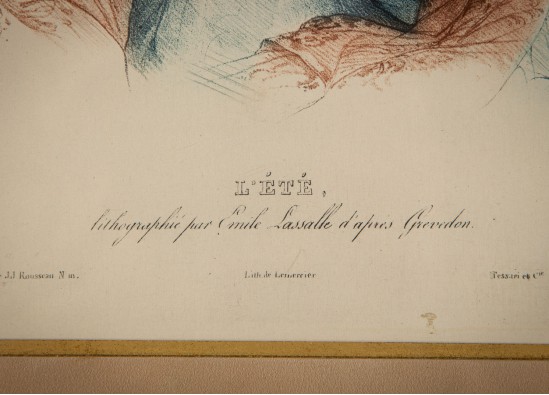 L'ÉTÉ,
lithographié par Émile Lassalle d'après Grevedon.
J.J. Rousseau N Lith. de Lemercier Tessari et Cie